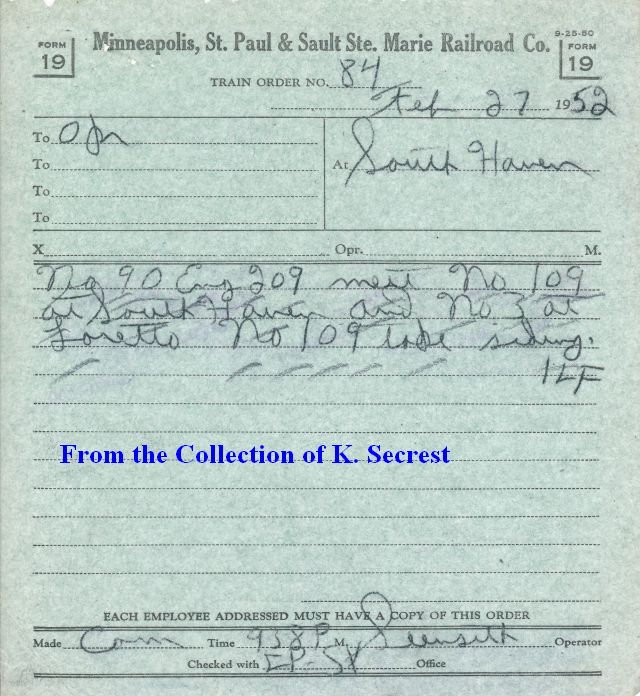 FORM 19 Minneapolis, St. Paul & Sault Ste. Marie Railroad Co. 9-25-50 FORM 19
TRAIN ORDER NO. 84
Feb 27 1952
To Opr At South Haven
To
To
To
X Opr. M.
No 90 Eng 209 meet No 109
at South Haven and No 3 at
Loretto No 109 take siding.
From the Collection of K. Secrest
EACH EMPLOYEE ADDRESSED MUST HAVE A COPY OF THIS ORDER
Made Com Time 938P M. Operator
Checked with Office